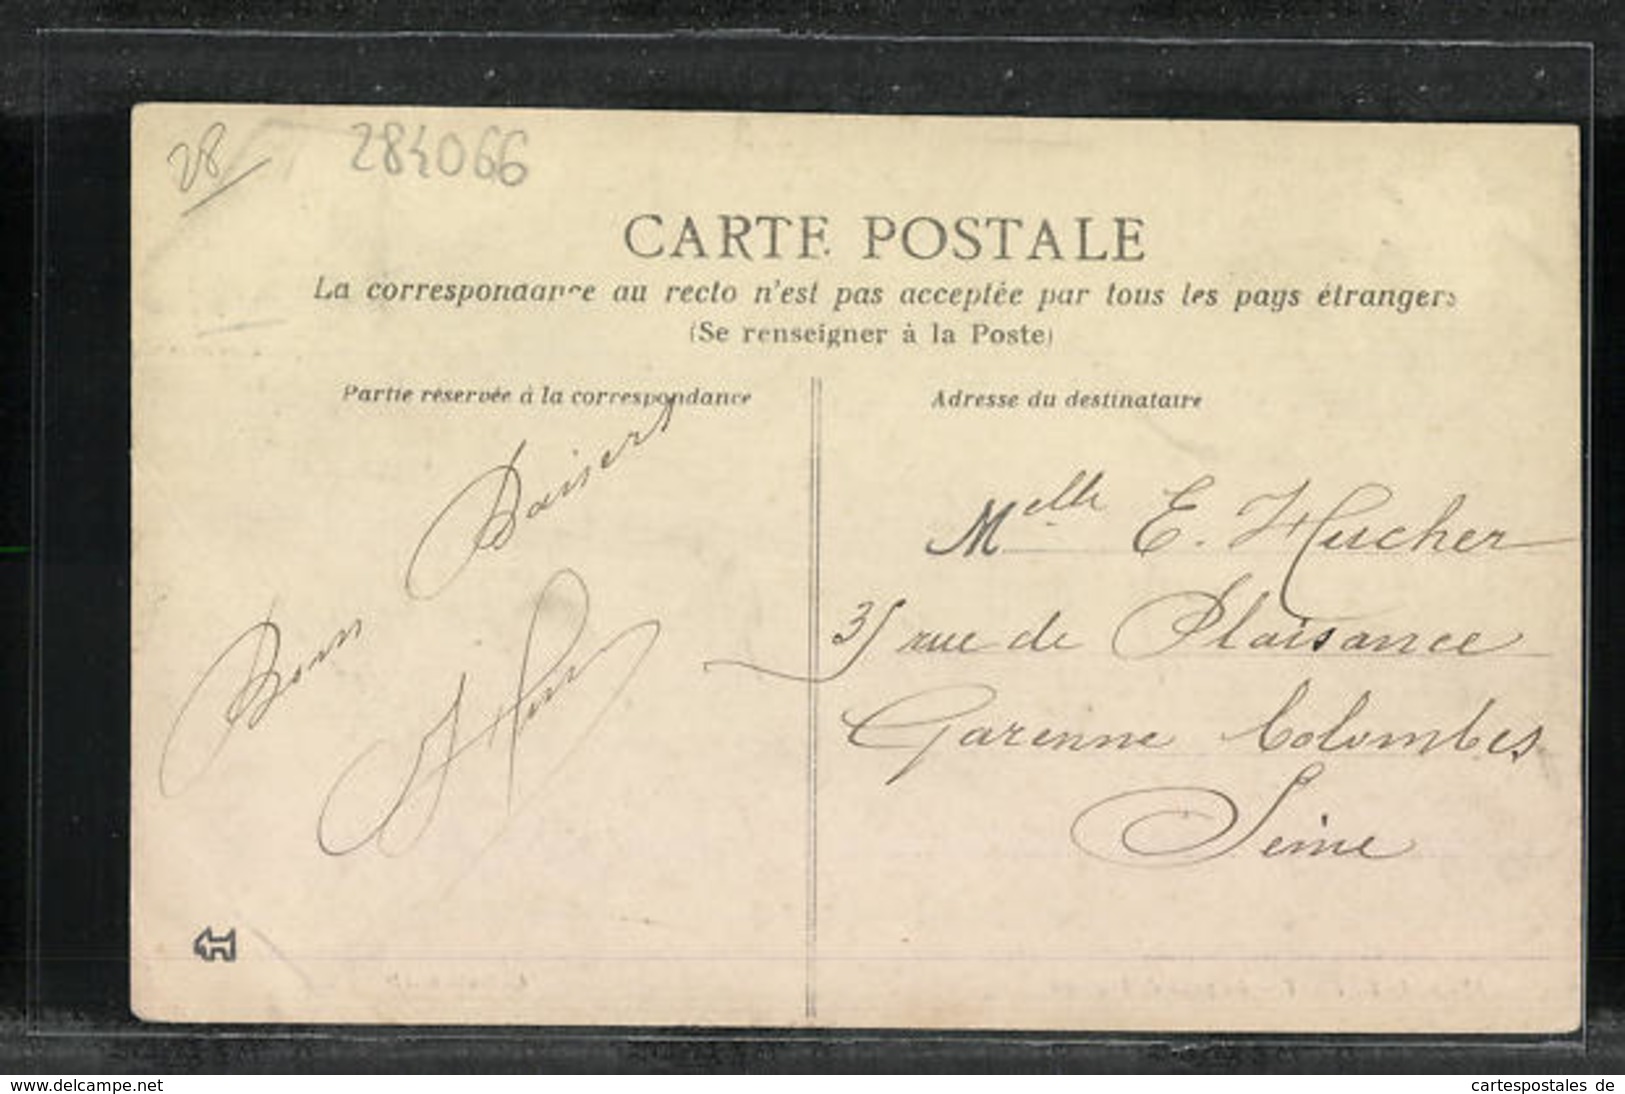 28
284066
CARTE POSTALE
La correspondance au recto n'est pas acceptée par tous les pays étrangers
(Se renseigner à la Poste)
Partie réservée à la correspondance
Adresse du destinataire
Bons Baisers
Melle E. Hucher
35 rue de Plaisance
Garenne Colombes
Seine
www.delcampe.net
cartespostales de